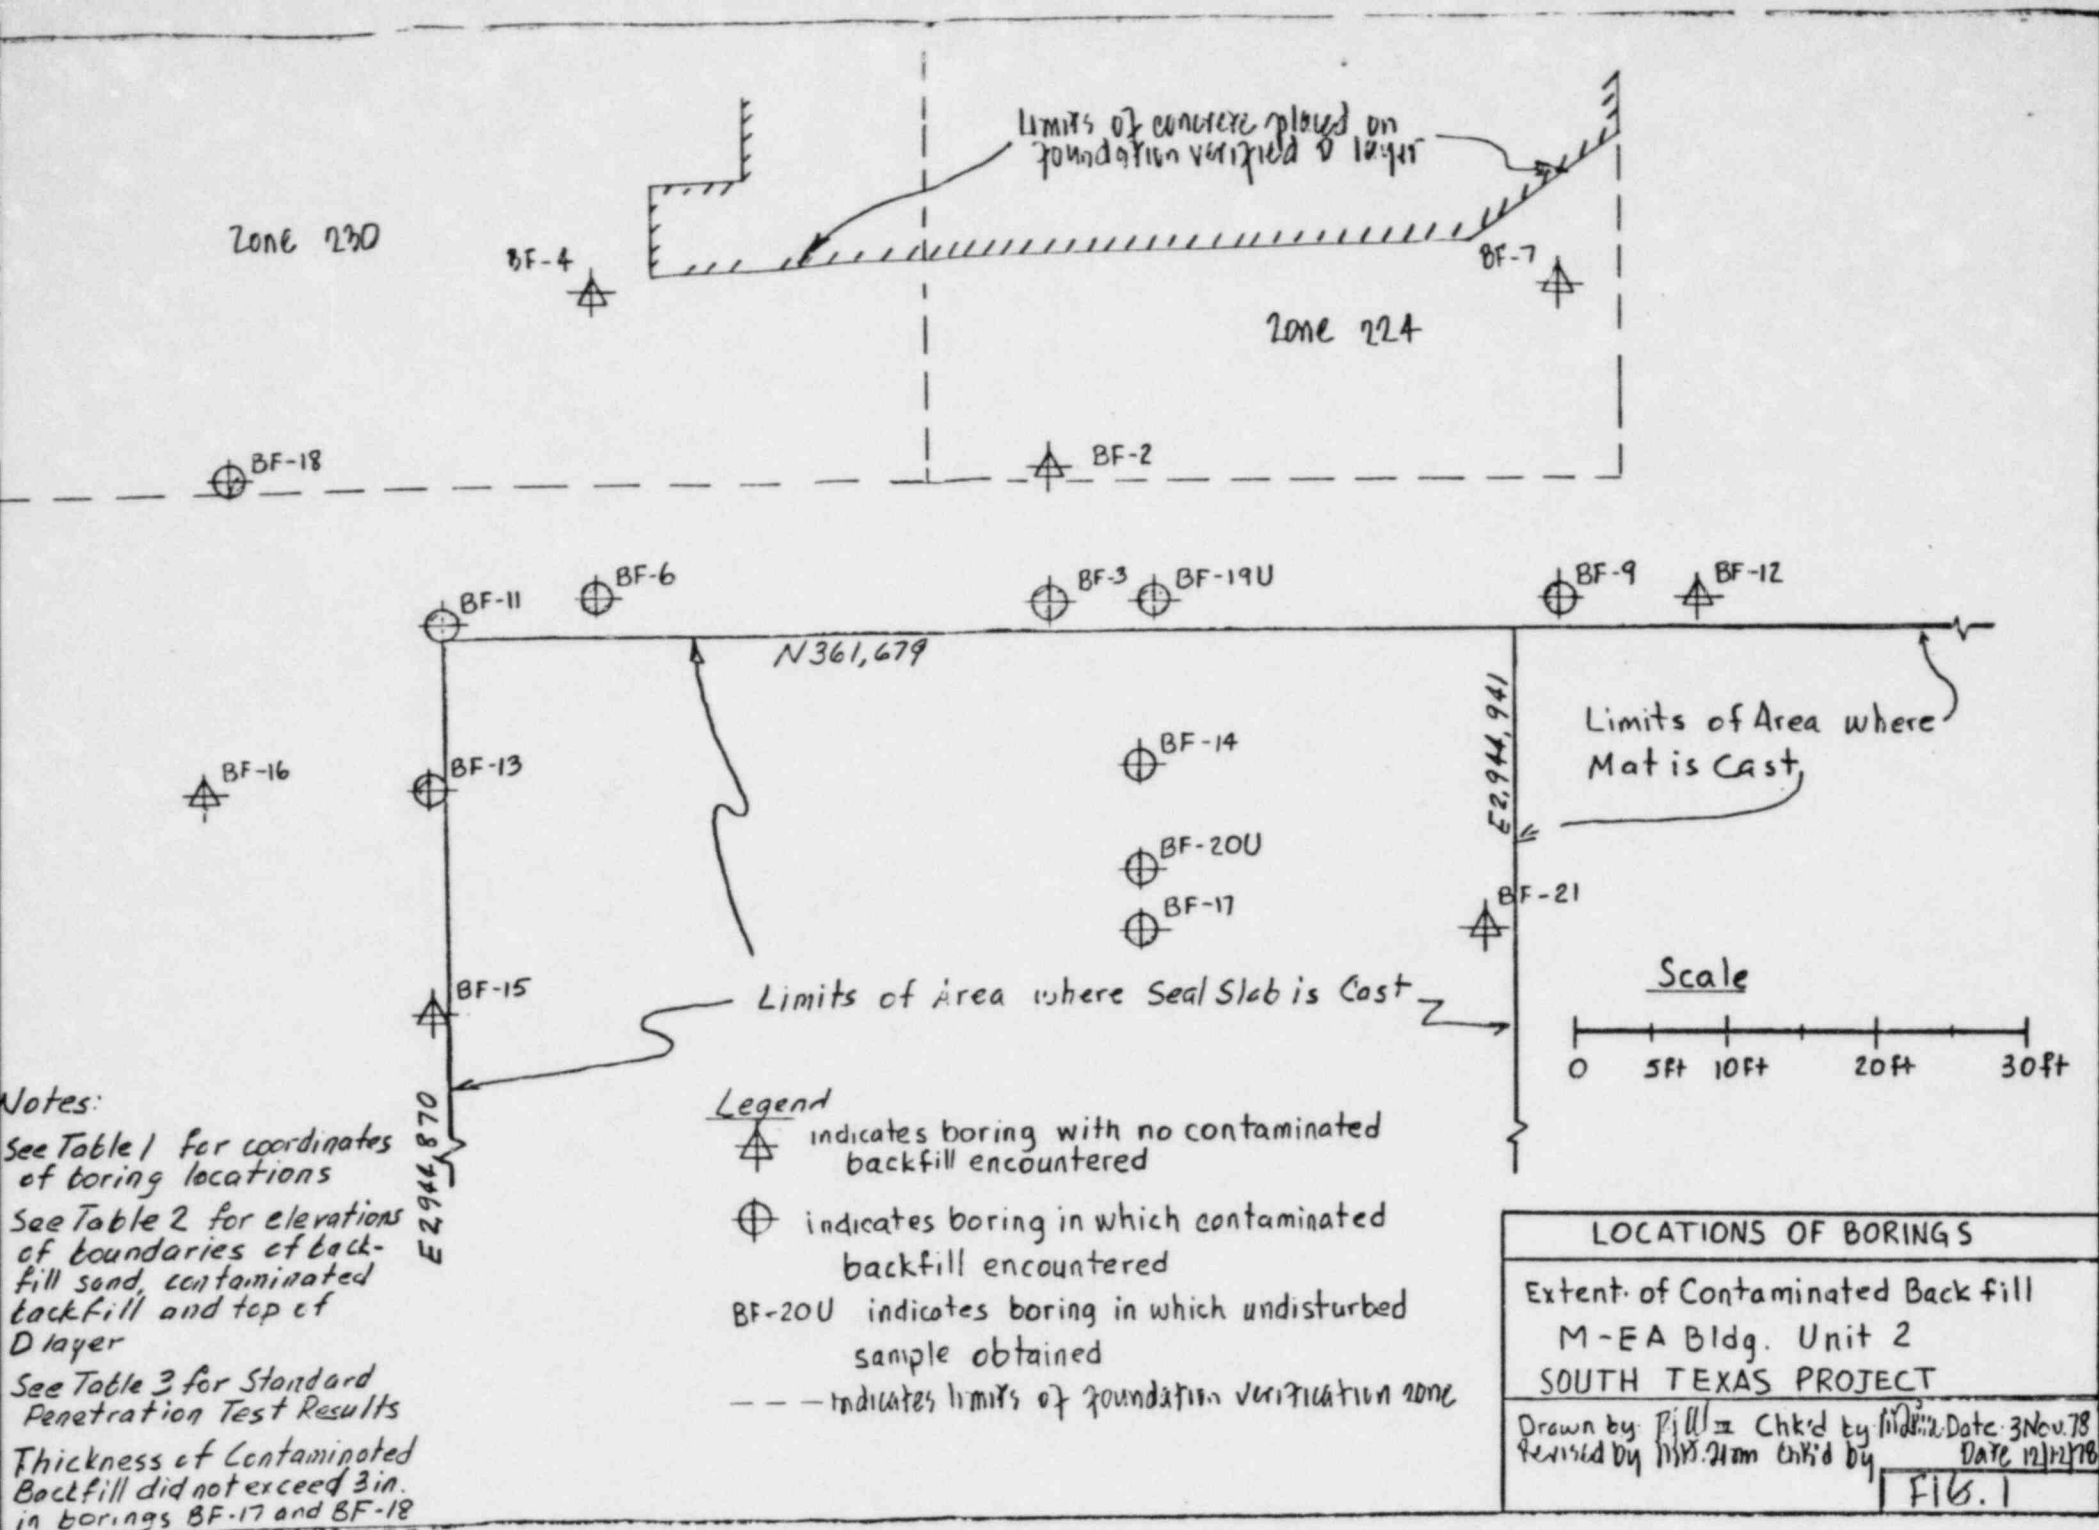 Limits of concrete placed on
foundation verified D layer
Zone 230
BF-4
BF-7
Zone 224
BF-18
BF-2
BF-11
BF-6
BF-3
BF-19U
BF-9
BF-12
N361,679
E2,944,941
Limits of Area where
Mat is Cast
BF-14
BF-16
BF-13
BF-20U
BF-17
BF-21
BF-15
Limits of Area where Seal Slab is Cast
Scale
0 5ft 10ft 20ft 30ft
E2944,870
Notes:
See Table 1 for coordinates
of boring locations
See Table 2 for elevations
of boundaries of back-
fill sand, contaminated
backfill and top of
D layer
See Table 3 for Standard
Penetration Test Results
Thickness of Contaminated
Backfill did not exceed 3 in.
in borings BF-17 and BF-18
Legend
indicates boring with no contaminated
backfill encountered
indicates boring in which contaminated
backfill encountered
BF-20U indicates boring in which undisturbed
sample obtained
--- indicates limits of foundation verification zone
LOCATIONS OF BORINGS
Extent of Contaminated Back fill
M-EA Bldg. Unit 2
SOUTH TEXAS PROJECT
Drawn by Chk'd by Date 3 Nov. 78
Revised by Chk'd by Date 12/12/78
FIG. 1